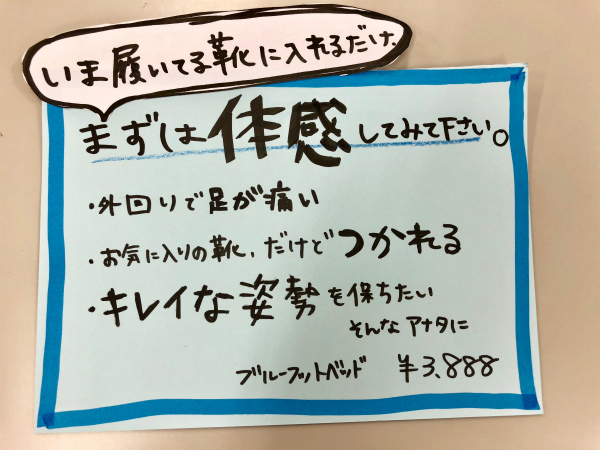 いま履いてる靴に入れるだけ.
まずは体感してみて下さい。
・外回りで足が痛い
・お気に入りの靴、だけどつかれる
・キレイな姿勢を保ちたい
そんなアナタに
ブルーフットベッド ¥3,888